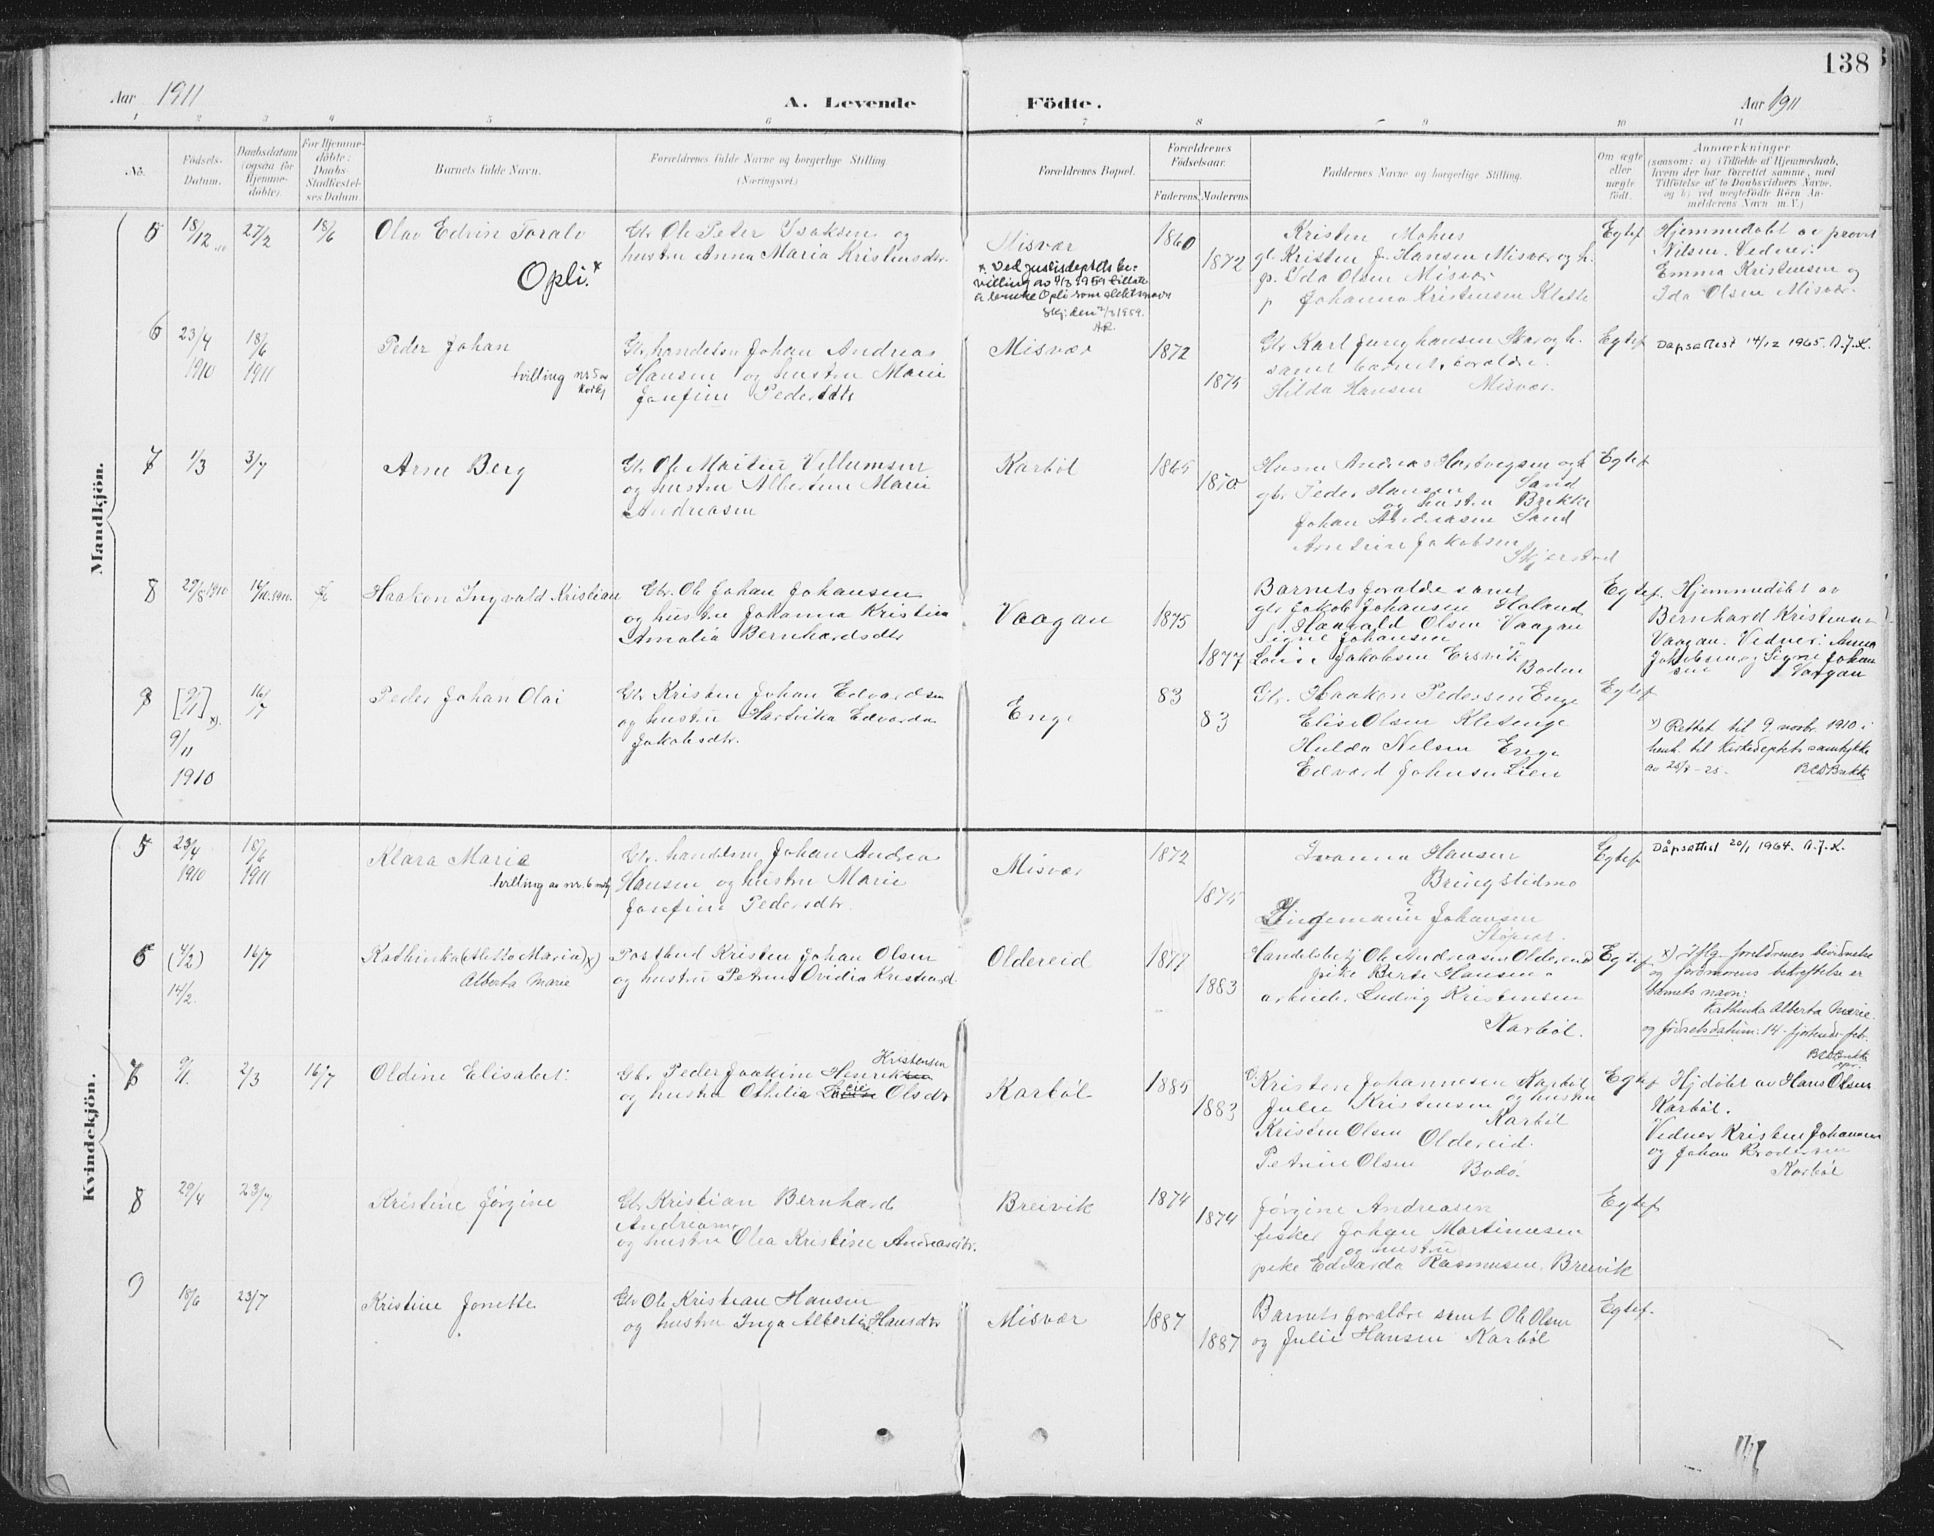 138
Aar 1911 A. Levende Födte. Aar 1911
1 2 3 4 5 6 7 8 9 10 11
No.
Födsels-
Datum.
Daabsdatum
(ogsaa for
Hjemme-
döbte).
For Hjemme-
döbte:
Daabs-
Stadfæstel-
ses Datum.
Barnets fulde Navn.
Forældrenes fulde Navne og borgerlige Stilling
(Næringsvei).
Forældrenes Bopæl.
Forældrenes
Födselsaar.
Faderens Moderens
Faddernes Navne og borgerlige Stilling.
Om ægte
eller
uægte
födt.
Anmærkninger
(saasom: a) i Tilfælde af Hjemmedaab,
hvem der har forrettet samme, med
Tilføielse af to Daabsvidners Navne,
og b) ved uægtefödte Börn An-
melderens Navn m. V.)
Mandkjön.
5 18/12 27/2 18/6 Olav Edvin Toralv
Opli. x
Gbr Ole Peter Isaksen og
hustru Anna Maria Kristensdtr.
Misvær
x. Ved justisdeptets be-
villing av 2/3 1959 tillatt
å bruke Opli som slektsnavn
1860 1872
Kristen Mohus
gb. Kristen J. Hansen Misvær og h.
p. Ida Olsen Misvær
p Johanna Kristensen Klette
Egtef
Hjemmedøbt av provst
Nilsen. Vedner:
Emma Kristensen og
Ida Olsen Misvær.
6 23/4 1910 18/6 1911 Peder Johan
tvilling nr 5 av
kvkj
Gbr. handelsm Johan Andreas
Hansen og hustru Marie
Josefine Pedersdtr
Misvær 1872 1875
Gbr Karl Junghansen Skar og h.
samt barnets foraldre.
Hilda Hansen Misvær.
Egtef Dåpsattest 14/12 1965. A.J.L.
7 1/3 3/7 Arne Berg
Gbr Ole Martin Villumsen
og hustru Albertine Marie
Andreasen
Karbøl 1865 1870
Husm Andreas Hartvigsen og h
gbr. Peder Hansen Sand
og hustru Brekke
Johan Andreasen Sand
Arntine Jakobsen
Skjerstad
Egtef
8 29/8 1910 Haakon Ingvald Kristian
Gbr. Ole Johan Johansen
og hustru Johanna Kristina
Amalia Bernhardsdtr
Vaagan 1875 1877
Barnets foralde samt
gbr Jakob Johansen Holand
Haavald Olsen Vaagan
Signe Johansen
Lovise Jakobsen Ersvik
Boden
Egtef.
Hjemmedøbt av
Bernhard Kristensen
Vaagan. Vedner: Anna
Jakobsen og Signe Johan
sen Vaagan
9 9/11 1910 16/7 Peder Johan Olai
Gbr Kristen Johan Edvardsen
og hustru Hartvika Edvarda
Jakobsdtr.
Enge 83 83
Gbr. Haakon Pedersen Enge
Elise Olsen Klesenge
Hulda Nilsen Enge
Edvard Johnsen Lien
Egtef
x) Rettet til 9. novbr. 1910 i
henh. til Kirkedeptets samtykke
av 25/8-25. BCDBakke
Kvindekjön.
5 23/4 1910 18/6 1911 Klara Marie
tvilling av nr. 6 mkj
Gbr. handelsm Johan Andrea
Hansen og hustru Marie
Josefine Pedersdtr.
Misvær 1872 1875
Ivanna Hansen
Bringslidmo
?
Lingemann Johansen
Egtef Dåpsattest 20/1 1964. A.J.L.
6 (4/2) 14/2. 16/7 Kathinka (Metto Maria) x)
Alberta Marie
Postbud Kristen Johan Olsen
og hustru Petrine Ovidia Kristiansd.
Oldereid 1877 1883
Handelsbetj Ole Andreasen Oldereid
pike Berte Hansen
arbeider Ludvig Kristensen
Karbøl.
Egtef
x) Iflg. foreldrenes beretnelse
og formorens bekreftelse er
barnets navn:
Kathinka Alberta Marie
og fødselsdatum: 14 - fjortende - feb.
BCDBakke
7 9/1. 2/3 16/7 Oldine Elisabet.
Kristensen
Gbr Peder Joakim Henriksen
og hustru Othilia Olsdtr
Karbøl 1885 1883
Kristen Johannesen Karbøl
og hustru
Julie Kristensen
Karbøl
Kristen Olsen Oldereid
Petrine Olsen Bodø.
Egtef
Hjdøbt av Hans Olsen
Karbøl.
Vedner Kristen Johansen
og Johan Brodersen
Karbøl
8 29/4 23/7 Kristine Jørgine
Gbr Kristian Bernhard
Andreasen
og hustru Olea Kristine Andreasdtr.
Breivik 1874 1874
Jørgine Andreasen
fisker Johan Martinusen
og hustru
pike Edvarda Rasmusen, Breivik
Egtef
9 18/6 23/7 Kristine Jonette
Gbr Ole Kristian Hansen
og hustru Inga Albertine Hansdtr
Misvær 1887 1887
Barnets foraldre samt Ole Olsen
og Julie Hansen Karbøl
Egtef.